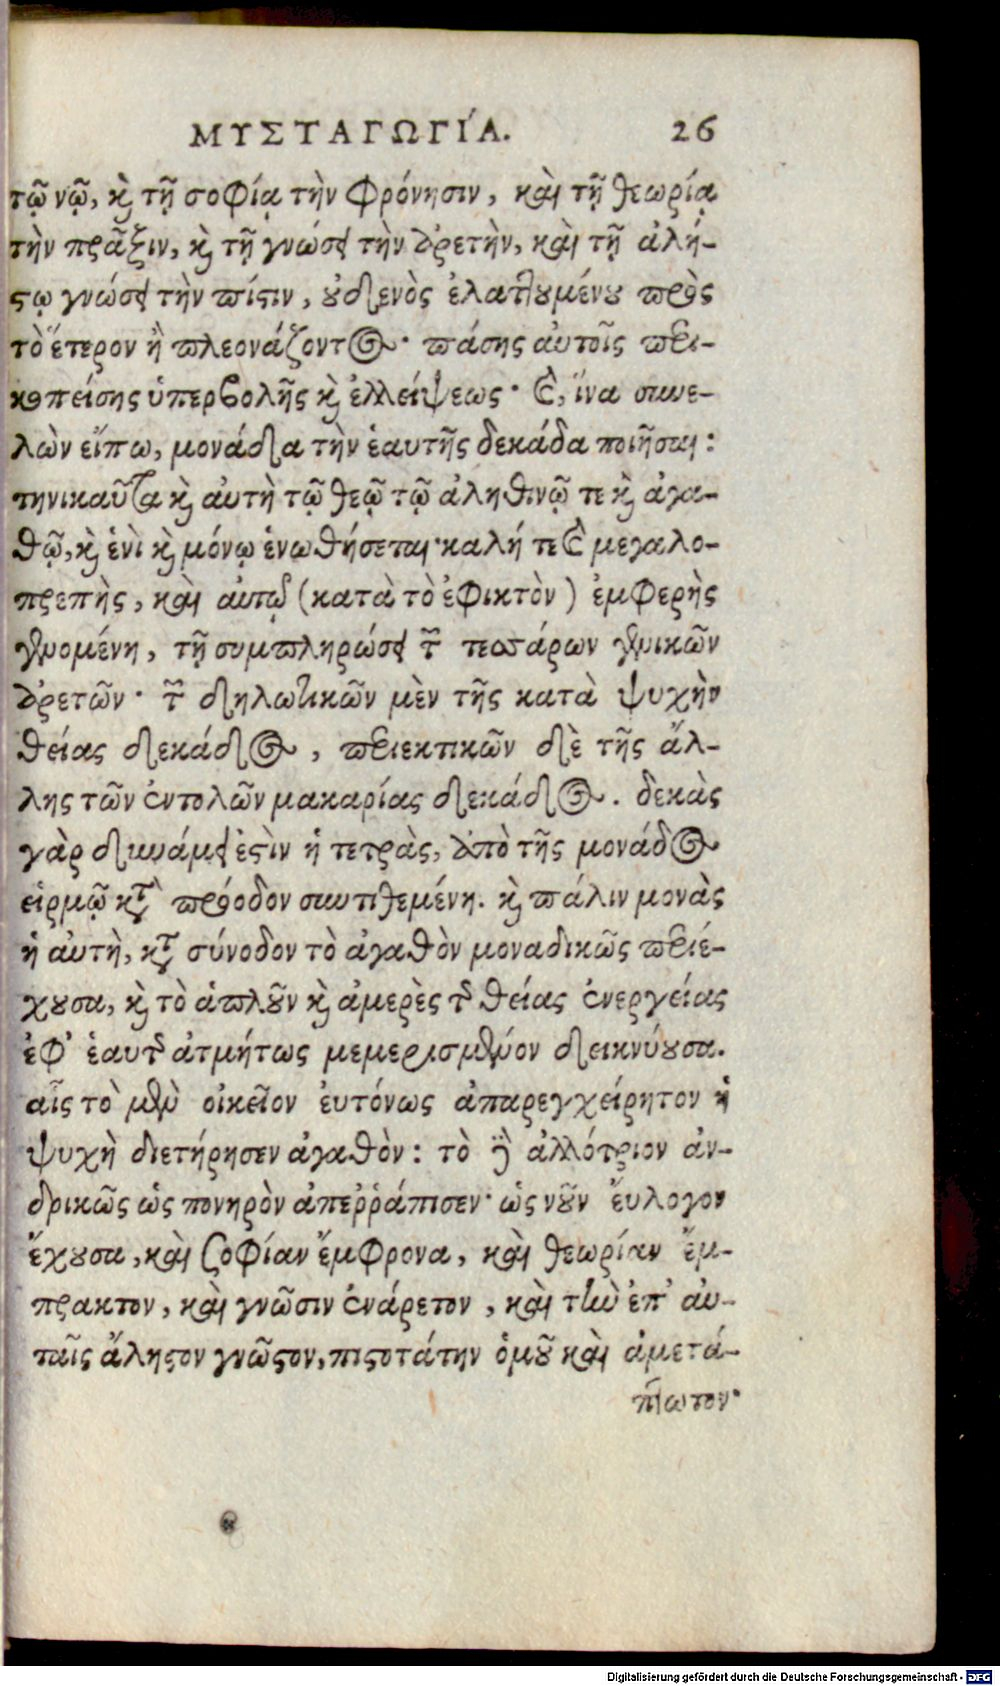 ΜΥΣΤΑΓΩΓΙΆ. 26
τῷ νῷ, κὶ τῇ σοφίᾳ τὴν φρόνησιν, καὶ τῇ θεωρίᾳ
τὴν πρᾶξιν, κὶ τῇ γνώσει τὴν ἀρετὴν, καὶ τῇ ἀλή-
ςῳ γνώσει τὴν πίςιν, οὐδενὸς ἐλαττουμένου πρὸς
τὸ ἕτερον ἢ πλεονάζοντος· πάσης αὐτοῖς περι-
κοπείσης ὑπερβολῆς κὶ ἐλλείψεως· καὶ, ἵνα συνε-
λὼν εἴπω, μονάδα τὴν ἑαυτῆς δεκάδα ποιῆσαι:
τηνικαῦτα κὶ αὐτὴ τῷ θεῷ τῷ ἀληθινῷ τε κὶ ἀγα-
θῷ, κὶ ἑνὶ κὶ μόνῳ ἑνωθήσεται· καλή τε καὶ μεγαλο-
πρεπὴς, καὶ αὐτῷ (κατὰ τὸ ἐφικτὸν) ἐμφερὴς
γενομένη, τῇ συμπληρώσει τῶν τεσσάρων γενικῶν
ἀρετῶν· τῶν δηλωτικῶν μὲν τῆς κατὰ ψυχὴν
θείας δεκάδος, περιεκτικῶν δὲ τῆς ἄλ-
λης τῶν ἐντολῶν μακαρίας δεκάδος. δεκὰς
γὰρ δυνάμει ἐςὶν ἡ τετρὰς, ἀπὸ τῆς μονάδος
εἱρμῷ κατὰ πρόοδον συντιθεμένη. κὶ πάλιν μονὰς
ἡ αὐτὴ, κατὰ σύνοδον τὸ ἀγαθὸν μοναδικῶς περιέ-
χουσα, κὶ τὸ ἁπλοῦν κὶ ἀμερὲς τῆς θείας ἐνεργείας
ἐφ' ἑαυτῆς ἀτμήτως μεμερισμένον δεικνύουσα.
αἷς τὸ μὲν οἰκεῖον εὐτόνως ἀπαρεγχείρητον ἡ
ψυχὴ διετήρησεν ἀγαθὸν: τὸ δὲ ἀλλότριον ἀν-
δρικῶς ὡς πονηρὸν ἀπεῤῥάπισεν· ὡς νοῦν εὔλογον
ἔχουσα, καὶ σοφίαν ἔμφρονα, καὶ θεωρίαν ἔμ-
πρακτον, καὶ γνῶσιν ἐνάρετον, καὶ τὴν ἐπ' αὐ-
ταῖς ἄληςον γνῶςον, πιςοτάτην ὁμοῦ καὶ ἀμετά-
πτωτον·
Digitalisierung gefördert durch die Deutsche Forschungsgemeinschaft - DFG